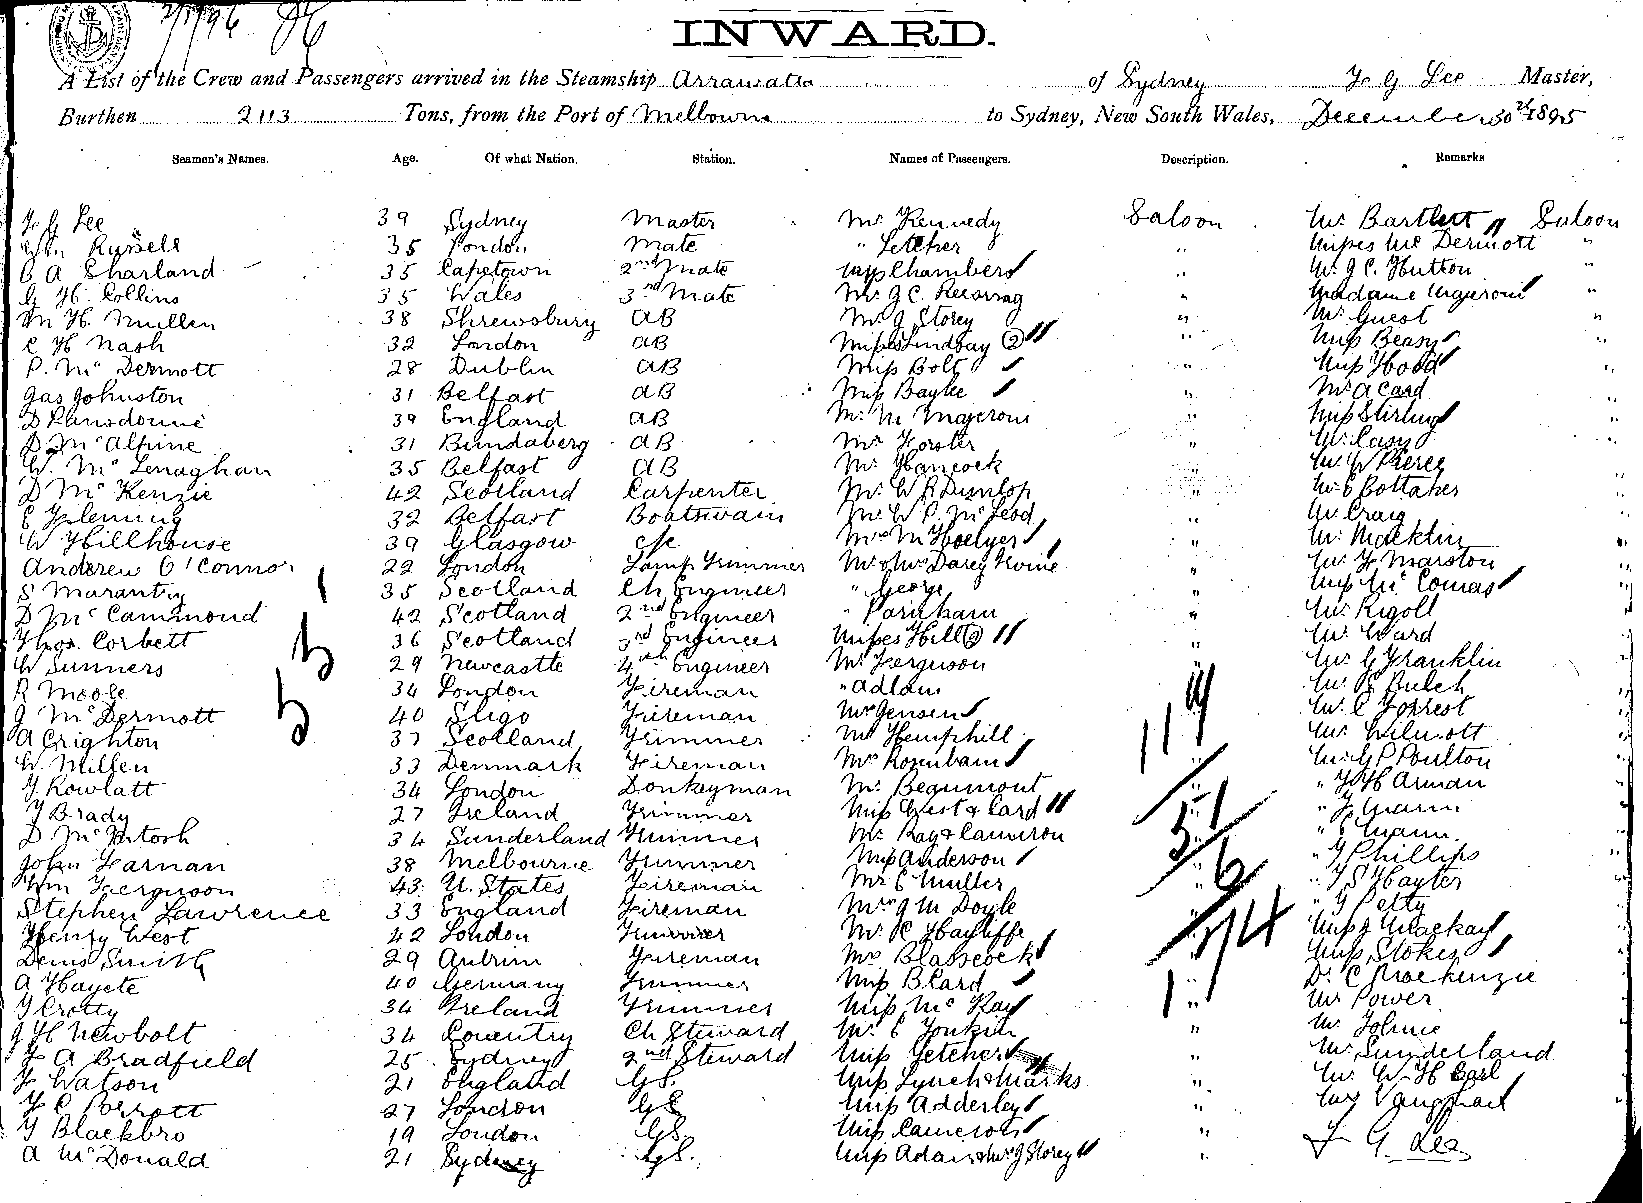 2/1/96
INWARD.
A List of the Crew and Passengers arrived in the Steamship Arrawatta of Sydney F G Lee Master,
Burthen 2113 Tons, from the Port of Melbourne to Sydney, New South Wales, December 30th 1895
Seamen's Names. Age. Of what Nation. Station. Names of Passengers. Description. Remarks
F G Lee 39 Sydney Master Mr Kennedy Saloon Mr Bartlett Saloon
Wm Russell 35 London Mate " Letcher " Misses McDermott "
C A Sharland 35 Capetown 2nd Mate Miss Chambers " Mr J C. Hutton "
G H. Collins 35 Wales 3rd Mate Mr J C. " Madame Majeroni "
M H. Mullen 38 Shrewsbury AB Mr J Storey " Mr Guest "
C H Nash 32 London AB Misses Lindsay 2 " Miss Beasy "
P. McDermott 28 Dublin AB Miss Bolt " Miss Hood "
Jas Johnston 31 Belfast AB Miss Baylee " Mr A Card "
D Lansdowne 39 England AB Mr M Majeroni " Miss Stirling "
D McAlpine 31 Bundaberg AB Mr Forster " Mr Casey "
W. McLenaghan 35 Belfast AB Mr Hancock " Mr W Pierce
D McKenzie 42 Scotland Carpenter Mr W R Dunlop " Mr C Bottaker
E Fleming 32 Belfast Boatswain Mr W P. McLeod " Mr Craig
W Hillhouse 39 Glasgow Mrs M Hoelyer " Mr Macklin "
Andrew O'Connor 22 London Lamp Trimmer Mr & Mrs Darcy Irvine " Mr F Marston "
S Maranty 35 Scotland Ch Engineer " George " Miss McComas "
D McCammond 42 Scotland 2nd Engineer " Farnham " Mr Rigoll "
Thos. Corbett 36 Scotland 3rd Engineer Misses Hill 2 " Mr Ward "
W Sunners 29 Newcastle 4th Engineer Mr Ferguson " Mr G Franklin "
R Moore 34 London Fireman " Adlam " Mr Bulch "
J McDermott 40 Sligo Fireman Mrs Jensen " Mr C Forrest "
A Crighton 37 Scotland Trimmer Mr Hemphill Mr Wilmott "
W. Millen 33 Denmark Fireman Mrs Rosenbam Mr G P Poulton "
T. Rowlatt 34 London Donkeyman Mr Beaumont " F H Arman "
T Brady 27 Ireland Trimmer Miss West & Card " F Mann "
D McIntosh 34 Sunderland Trimmer Mr Ray & Cameron " E Mann. "
John Farnan 38 Melbourne Trimmer Miss Anderson " " F Phillips "
Wm Ferguson 43 U. States Fireman Mr E Muller " " F S Hayter "
Stephen Lawrence 33 England Fireman Mrs J M Doyle " " T Petty "
Henry West 42 London Trimmer Mr R Hayliffe " Miss J Mackay "
Denis Smith 29 Antrim Fireman Mrs Blasscock " Miss Stokes "
A Hayete 40 Germany Trimmer Miss B Card " Dr C Mackenzie "
T Crotty 34 Ireland Trimmer Miss McKay " Mr Power
J H Newbolt 34 Coventry Ch Steward Mr E Tonkin " Mr Tolmie
F A Bradfield 25 Sydney 2nd Steward Miss Letcher " Mr Sunderland
F Watson 21 England GS. Miss Lynch & Marks " Mr W H Carl
F C Porrott 27 London GS Miss Adderley " Vaughan
T Blackbro 19 London GS. Miss Cameron " F G. Lee
A McDonald 21 Sydney GS. Miss Adair & Mrs J Storey "